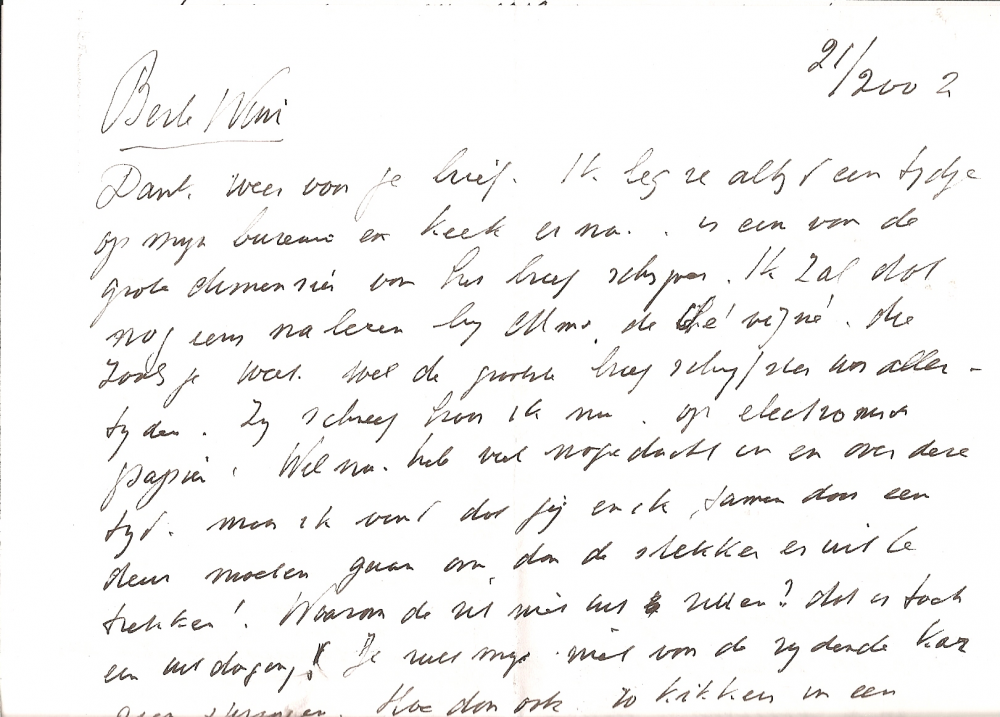 21/2002
Beste Wim
Dank. weer voor je brief. Ik leg ze altijd een tijdje
op mijn bureau en keek erna.. is een van de
grote dimensies van het brief schrijven. Ik zal dat
nog eens nalezen bij Mme. de die
zoals je weet. wel de grootste brief schrijfster van aller-
tijden. Zij schreef hoor ik nu. op electronisch
papier. heb veel nagedacht in en over deze
tijd. maar ik vond dat jij en ik samen door een
deur moeten gaan om dan de stekker er uit te
trekken! Waarom de rit niet uit zitten? dat is toch
een uitdaging! Je moet mijn niet van de rijdende kar
Hoe dan ook. zo kikken in een